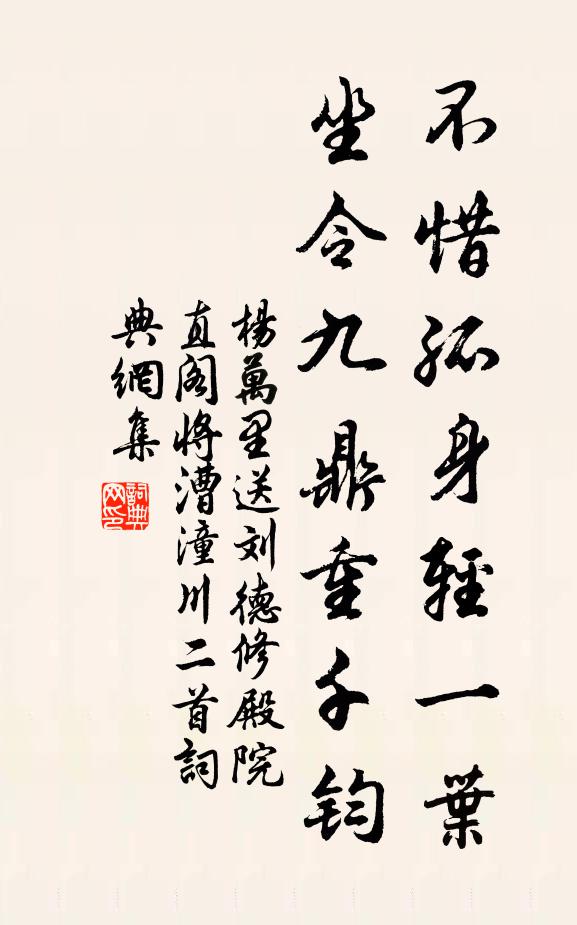 不惜孤身輕一葉
坐令九鼎重千鈞
楊萬里送刘德修殿院
直阁将漕潼川二首詞
典網集
詞典网印